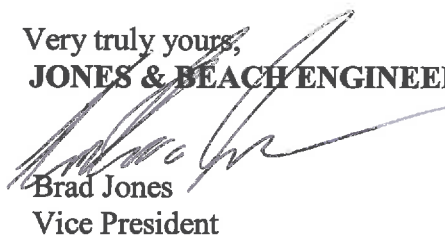 Very truly yours,
JONES & BEACH ENGINEE
Brad Jones
Vice President